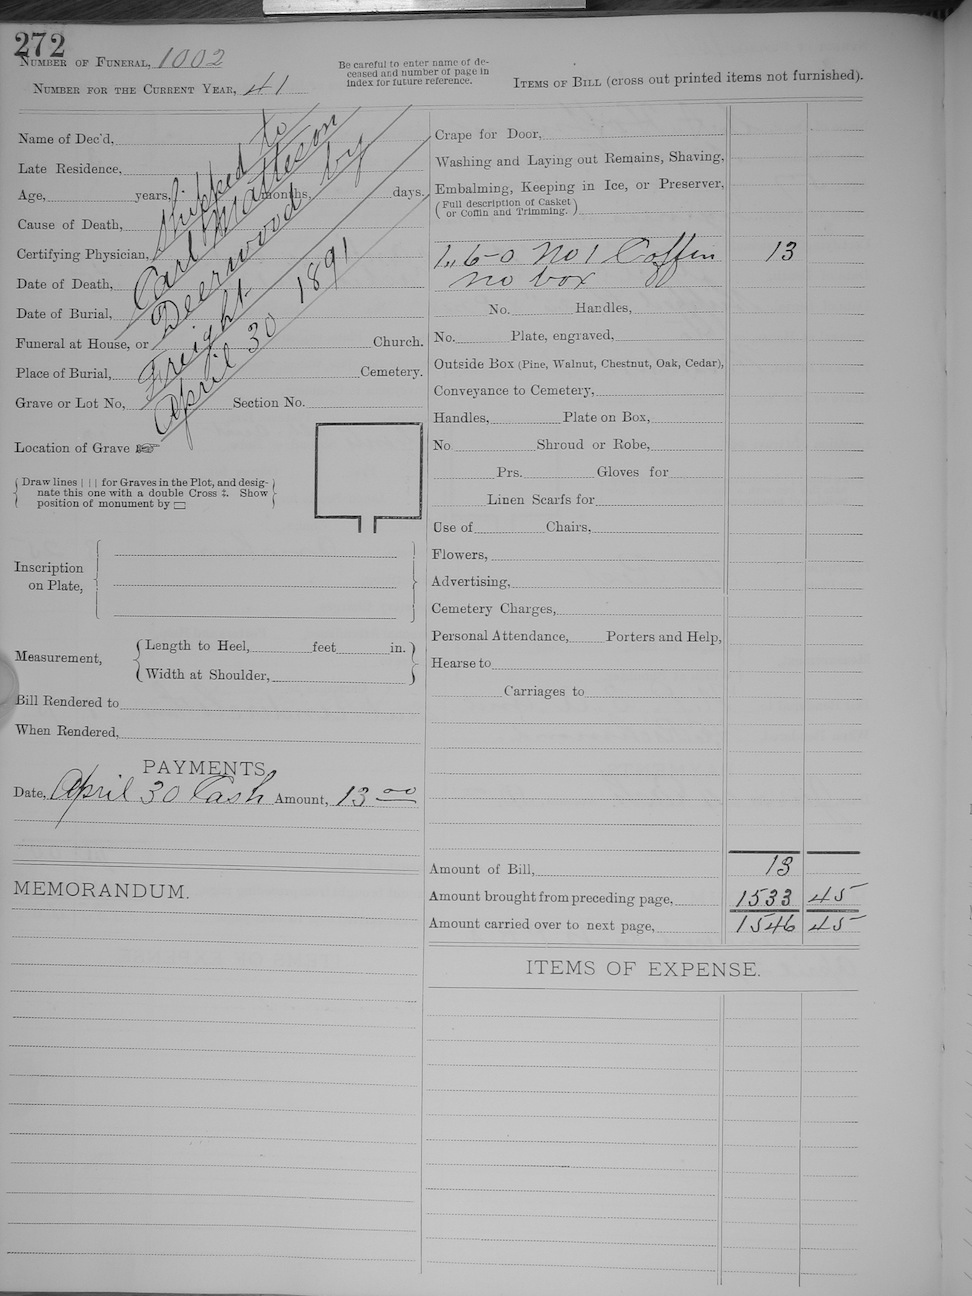 272
NUMBER OF FUNERAL, 1002
NUMBER FOR THE CURRENT YEAR, 41
Be careful to enter name of de-
ceased and number of page in
index for future reference.
ITEMS OF BILL (cross out printed items not furnished).
Name of Dec'd,
Late Residence,
Age, years, months, days.
Cause of Death,
Certifying Physician,
Date of Death,
Date of Burial,
Funeral at House, or Church.
Place of Burial, Cemetery.
Grave or Lot No, Section No.
Shipped to
Carl Matteson
Deerwood by
Freight
April 30 1891
Location of Grave ☞
Draw lines | | | for Graves in the Plot, and desig-
nate this one with a double Cross ‡. Show
position of monument by ▭
Inscription
on Plate,
Measurement,
Length to Heel, feet in.
Width at Shoulder,
Bill Rendered to
When Rendered,
PAYMENTS
Date, April 30 Cash Amount, 13 00
MEMORANDUM.
Crape for Door,
Washing and Laying out Remains, Shaving,
Embalming, Keeping in Ice, or Preserver,
(Full description of Casket
or Coffin and Trimming.)
1, 6-0 No 1 Coffin 13
no box
No. Handles,
No. Plate, engraved,
Outside Box (Pine, Walnut, Chestnut, Oak, Cedar),
Conveyance to Cemetery,
Handles, Plate on Box,
No Shroud or Robe,
Prs. Gloves for
Linen Scarfs for
Use of Chairs,
Flowers,
Advertising,
Cemetery Charges,
Personal Attendance, Porters and Help,
Hearse to
Carriages to
Amount of Bill, 13
Amount brought from preceding page, 1533 45
Amount carried over to next page, 1546 45
ITEMS OF EXPENSE.